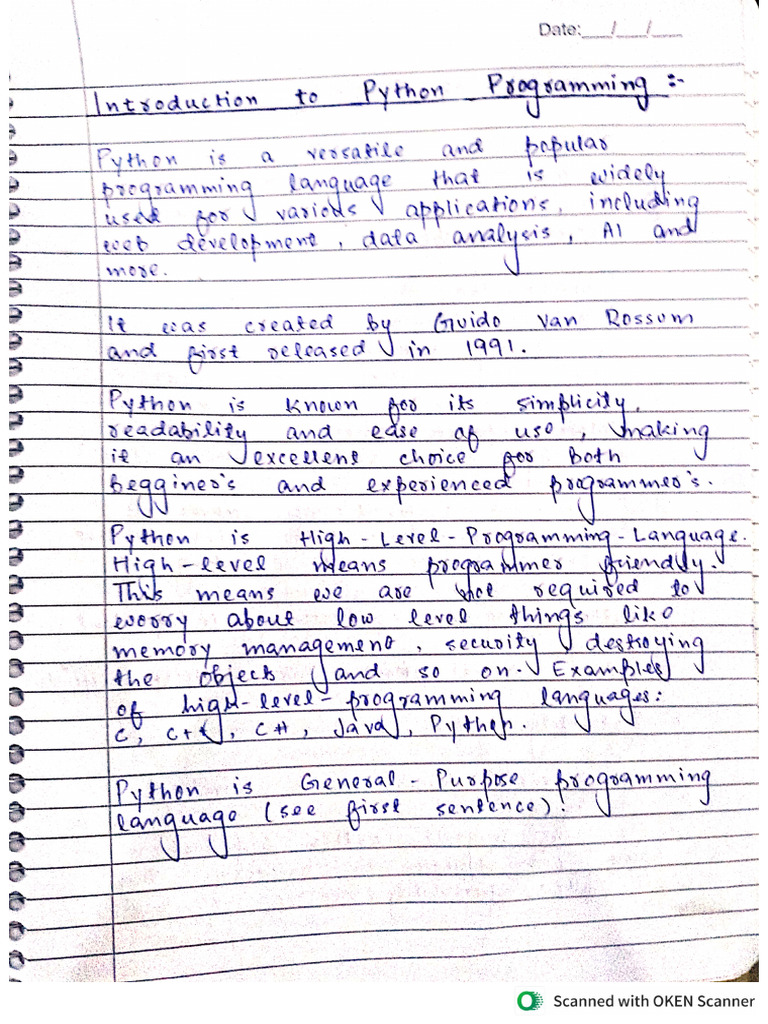 Date:__/__/__
Introduction to Python Programming :-
Python is a versatile and popular
programming language that is widely
used for various applications, including
web development, data analysis, AI and
more.
It was created by Guido Van Rossum
and first released in 1991.
Python is known for its simplicity,
readability and ease of use, making
it an excellent choice for both
begginer's and experienced programmer's.
Python is High-Level-Programming-Language.
High-level means programmer friendly.
This means we are not required to
worry about low level things like
memory management, security, destroying
the objects and so on. Examples
of high-level-programming languages:
C, C++, C#, Java, Python.
Python is General-Purpose programming
language (see first sentence).
Scanned with OKEN Scanner